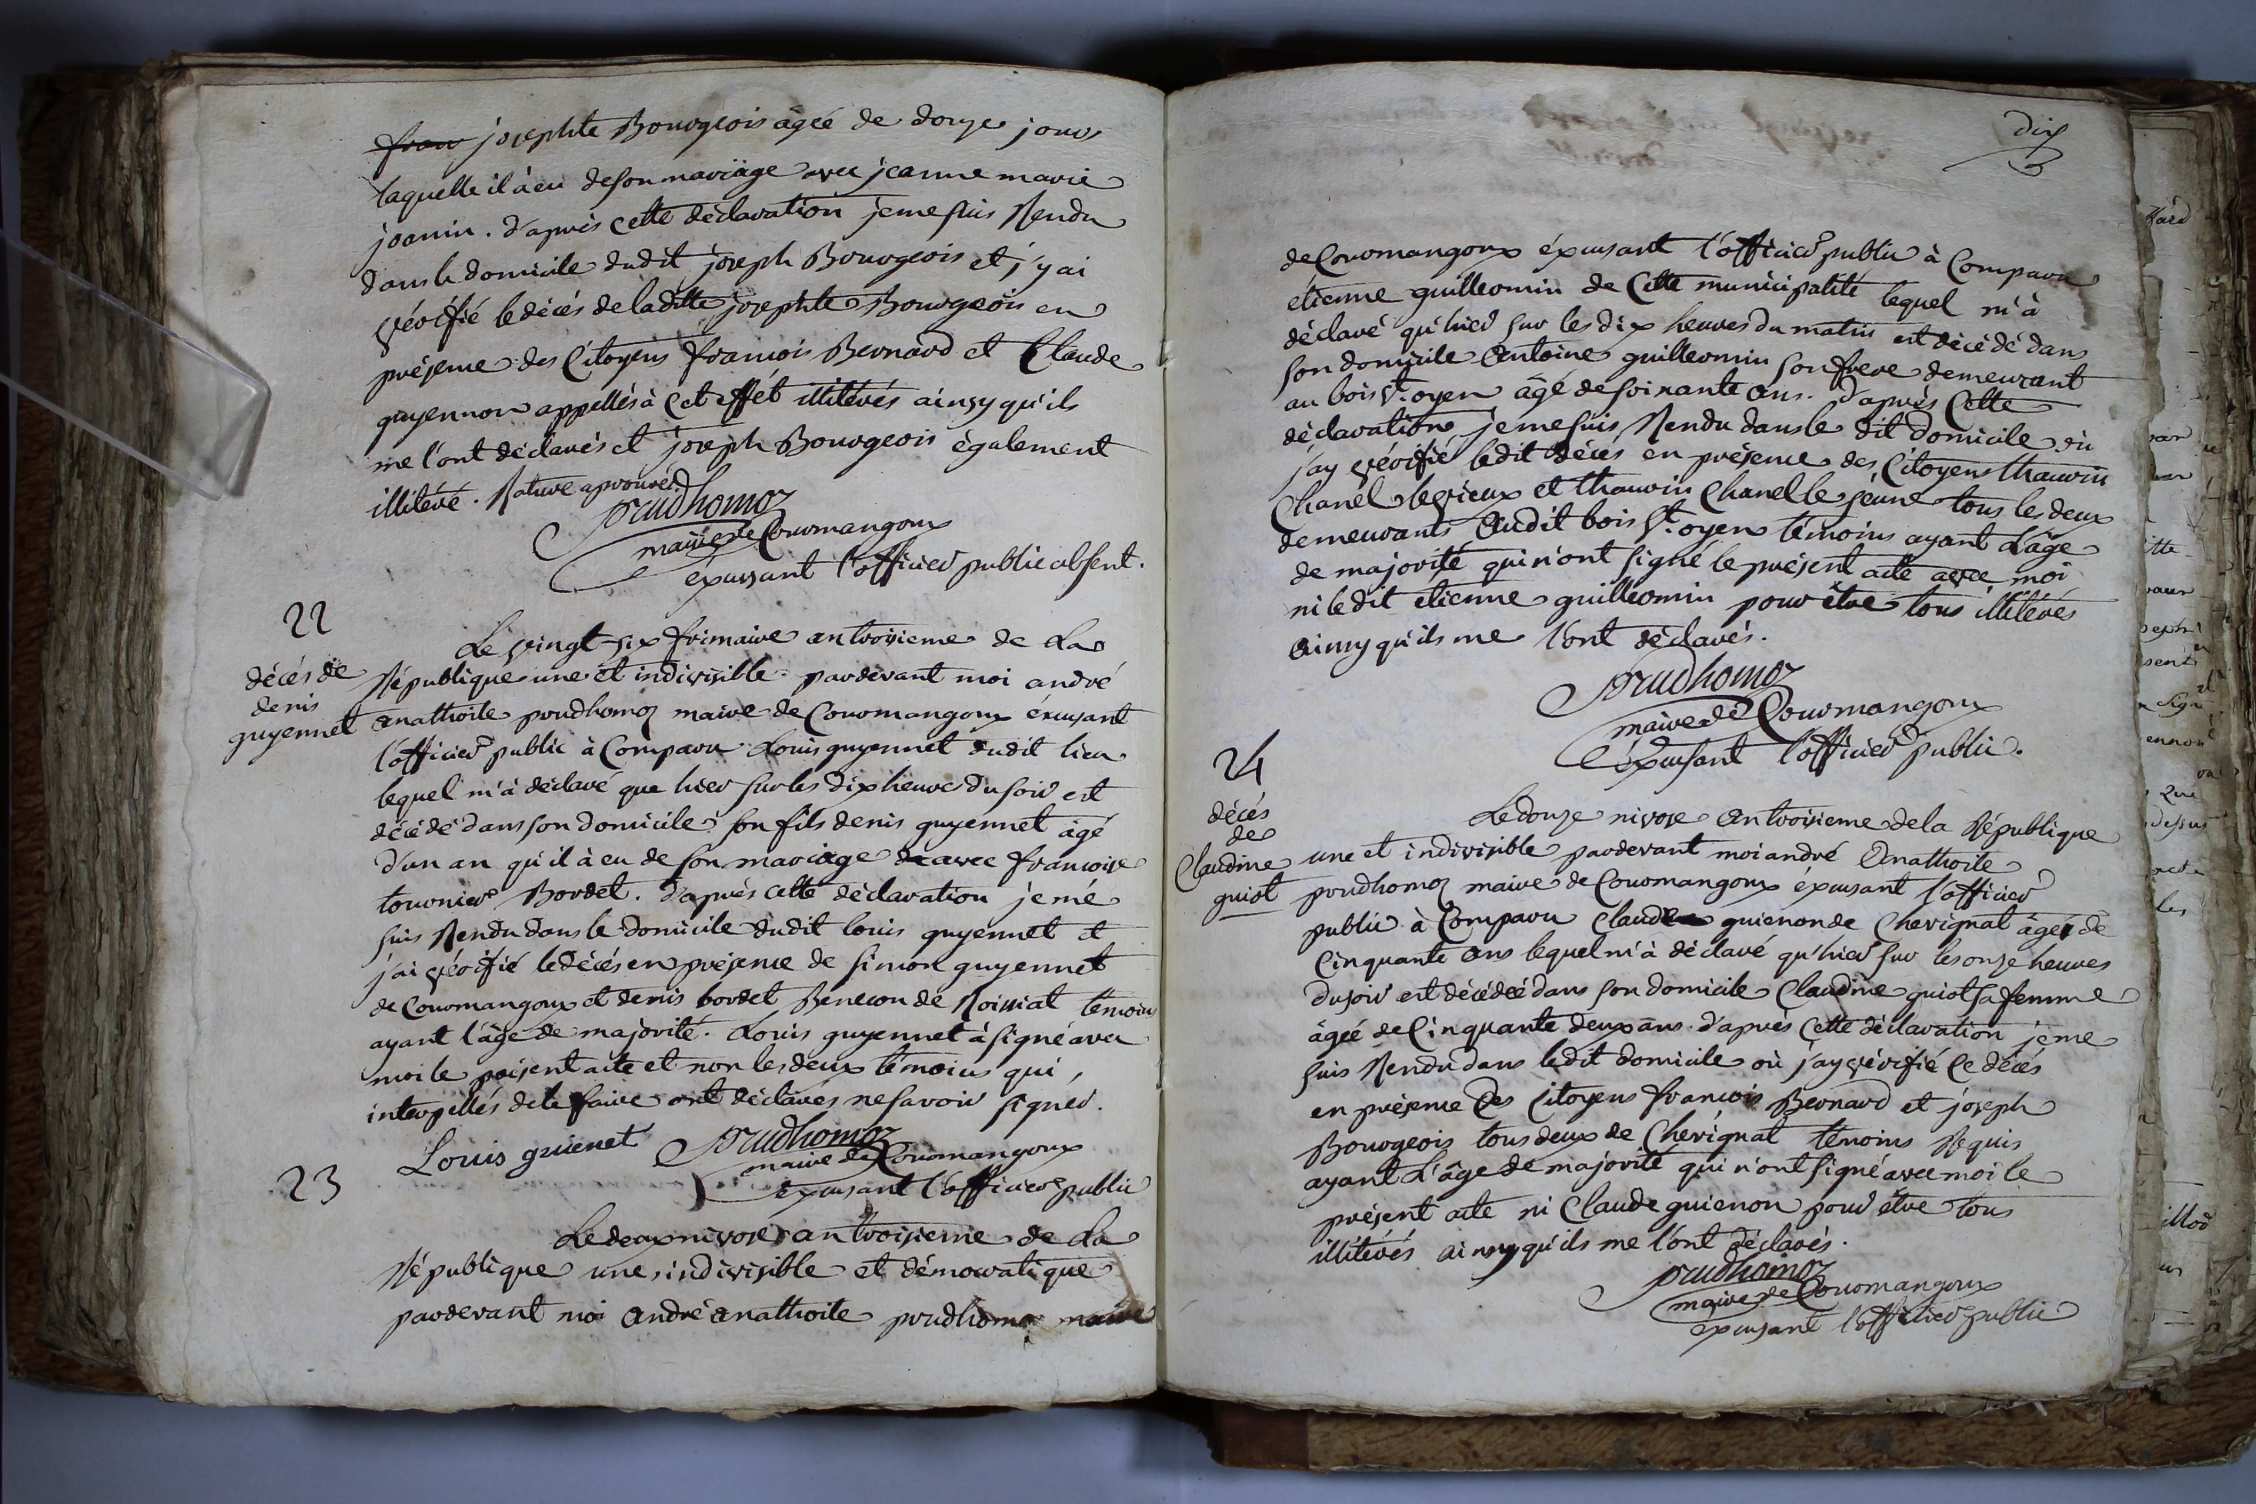 fran josephte Bourgeois âgée de douze jours
laquelle il à eu de son mariäge avec jeanne marie
joanin. d'après cette déclaration je me suis Rendu
dans le domicile dudit joseph Bourgeois et j'y ai
vérifié le décés de la ditte josephte Bourgeois en
présence des Citoyens francois Bernard et Claude
guyennon appellés à cet effét illitérés ainsy qu'ils
me l'ont déclarés et joseph Bourgeois également
illitéré. Rature aprouvée.
prudhomoz
maire de Couromangoux
éxcusant l'officier public absent.
22
décés de
denis
guyennet
Le vingt six frimaire an troisieme de La
République une et indivisible pardevant moi andré
anathoile prudhomoz maire de Couromangoux exçusant
l'officier public à Comparu Louis guyennet dudit lieu
lequel m'à déclaré que hier sur les dix heures du soir est
décédé dans son domicile son fils denis guyennet âgé
d'un an qu'il à eu de son mariage avec francoise
tournier Bordet. d'après cette déclaration je me
suis Rendu dans le domicile dudit louis guyennet et
j'ai vérifié le décés en présence de simon guyennet
de Couromangoux et denis bordet Benecon de Roissiat témoins
ayant l'âge de majorité. Louis guyennet à signé avec
moi le présent acte et non les deux témoins qui,
interpellés de le faire ont déclarés ne savoir signer.
Louis guienet prudhomoz
maire de Couromangoux
éxcusant l'officier public
23
Le deux nivose an troisieme de La
République une, indivisible et démocratique
pardevant moi andré anathoile prudhomoz maire
dix
de Couromangoux éxcusant l'officier public à Comparu
etienne guilleomin de Cette municipalité lequel m'à
déclaré qu'hier sur les dix heures du matin est décédé dans
son domicile Antoine guilleomin son frere demeurant
au bois St. oyen âgé de soixante ans. d'après Cette
déclaration je me suis Rendu dans le dit domicile où
j'ay vérifié ledit décés en présence des Citoyens thauvin
Chanel le vieux et thauvin Chanel le jeune tous les deux
demeurants Audit bois St. oyen témoins ayant L'âge
de majorité qui n'ont signé le présent acte avec moi
ni le dit etienne guilleomin pour être tous illitérés
Ainsy qu'ils me l'ont déclarés.
prudhomoz
maire de Couromangoux
éxcusant l'officier public.
24
décés
de
Claudine
guiot
Le douze nivose an troisieme de la République
une et indivisible pardevant moi andré Anathoile
prudhomoz maire de Couromangoux éxcusant l'officier
public à Comparu Claude guienon de Chevignat âgé de
Cinquante ans lequel m'à déclaré qu'hier sur les onze heures
du soir est décédée dans son domicile Claudine guiot sa femme
âgée de Cinquante deux ans. d'après cette déclaration je me
suis Rendu dans ledit domicile où j'ay vérifié Ce décés
en présence des Citoyens francois Bernard et joseph
Bourgeois tous deux de Chevignat témoins Requis
ayant L'âge de majorité qui n'ont signé avec moi le
présent acte ni Claude guienon pour être tous
illitérés ainsy qu'ils me l'ont déclarés.
prudhomoz
maire de Couromangoux
éxcusant l'officier public